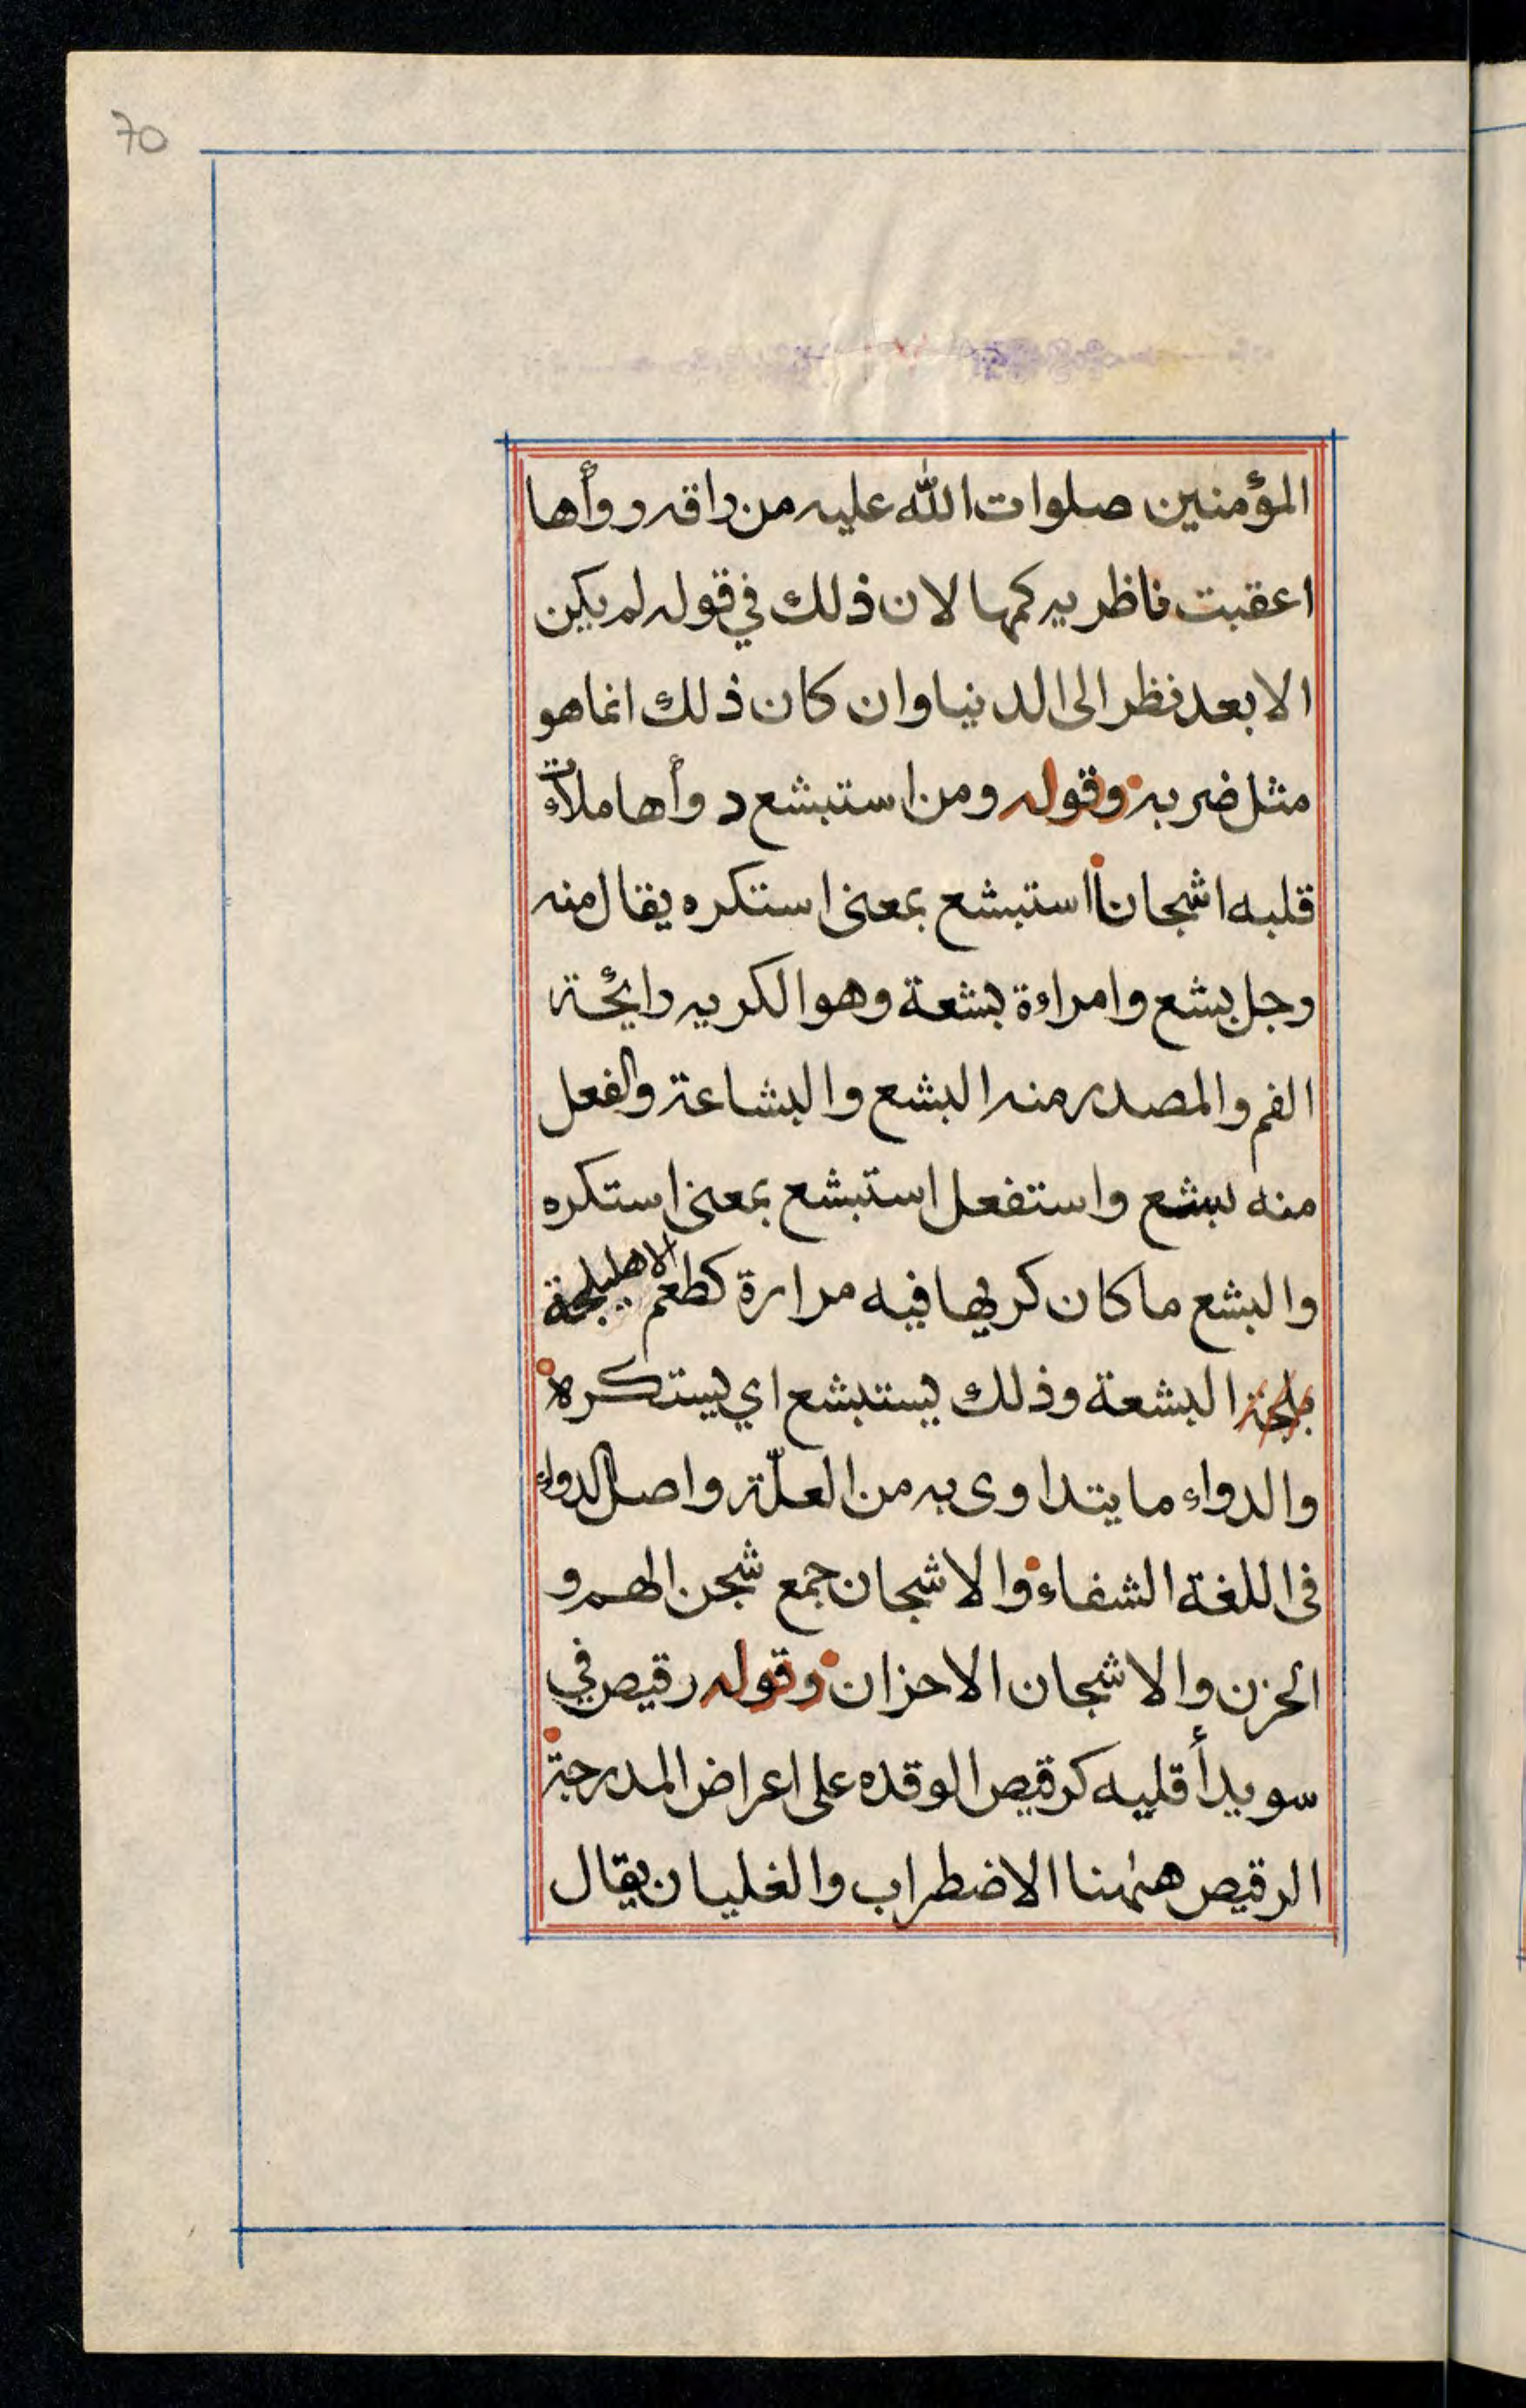 70
المؤمنين صلوات الله عليه من راقه روأها
اعقبت ناظريه كمها لان ذلك في قوله لم يكن
الا بعد نظر الى الدنيا وان كان ذلك انما هو
مثل ضربه وقوله ومن استبشع دوأها ملأت
قلبه اشجانا استبشع بمعنى استكره يقال منه
رجل بشع وامراءة بشعة وهو الكريه رائحة
الفم والمصدر منه البشع والبشاعة والفعل
منه بشع واستفعل استبشع بمعنى استكره
والبشع ما كان كريها فيه مرارة كطعم الاهليلجة
بلجة البشعة وذلك يستبشع اي يستكره
والدواء ما يتداوى به من العلّة واصل الدواء
فى اللغة الشفاء والاشجان جمع شجن الهم و
الحزن والاشجان الاحزان وقوله رقيص في
سويدأ قلبه كرقيص الوقده على اعراض المدرجة
الرقيص هٰهنا الاضطراب والغليان يقال